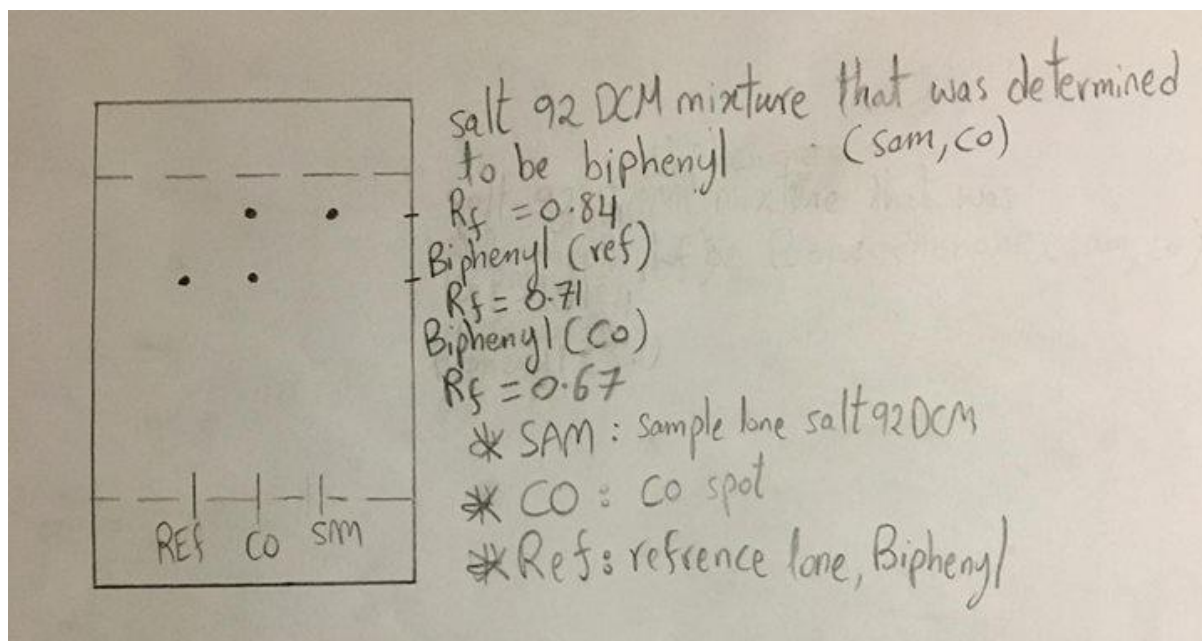 salt 92 DCM mixture that was determined
to be biphenyl (sam, co)
Rf = 0.84
Biphenyl (ref)
Rf = 0.71
Biphenyl (Co)
Rf = 0.67
* SAM : sample lone salt 92 DCM
* CO : Co spot
* Ref : refrence lone, Biphenyl
REf CO SM